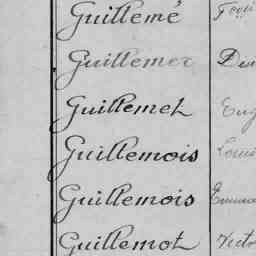 Guillemé
Guillemer
Guillemet
Guillemois Louis
Guillemois
Guillemot